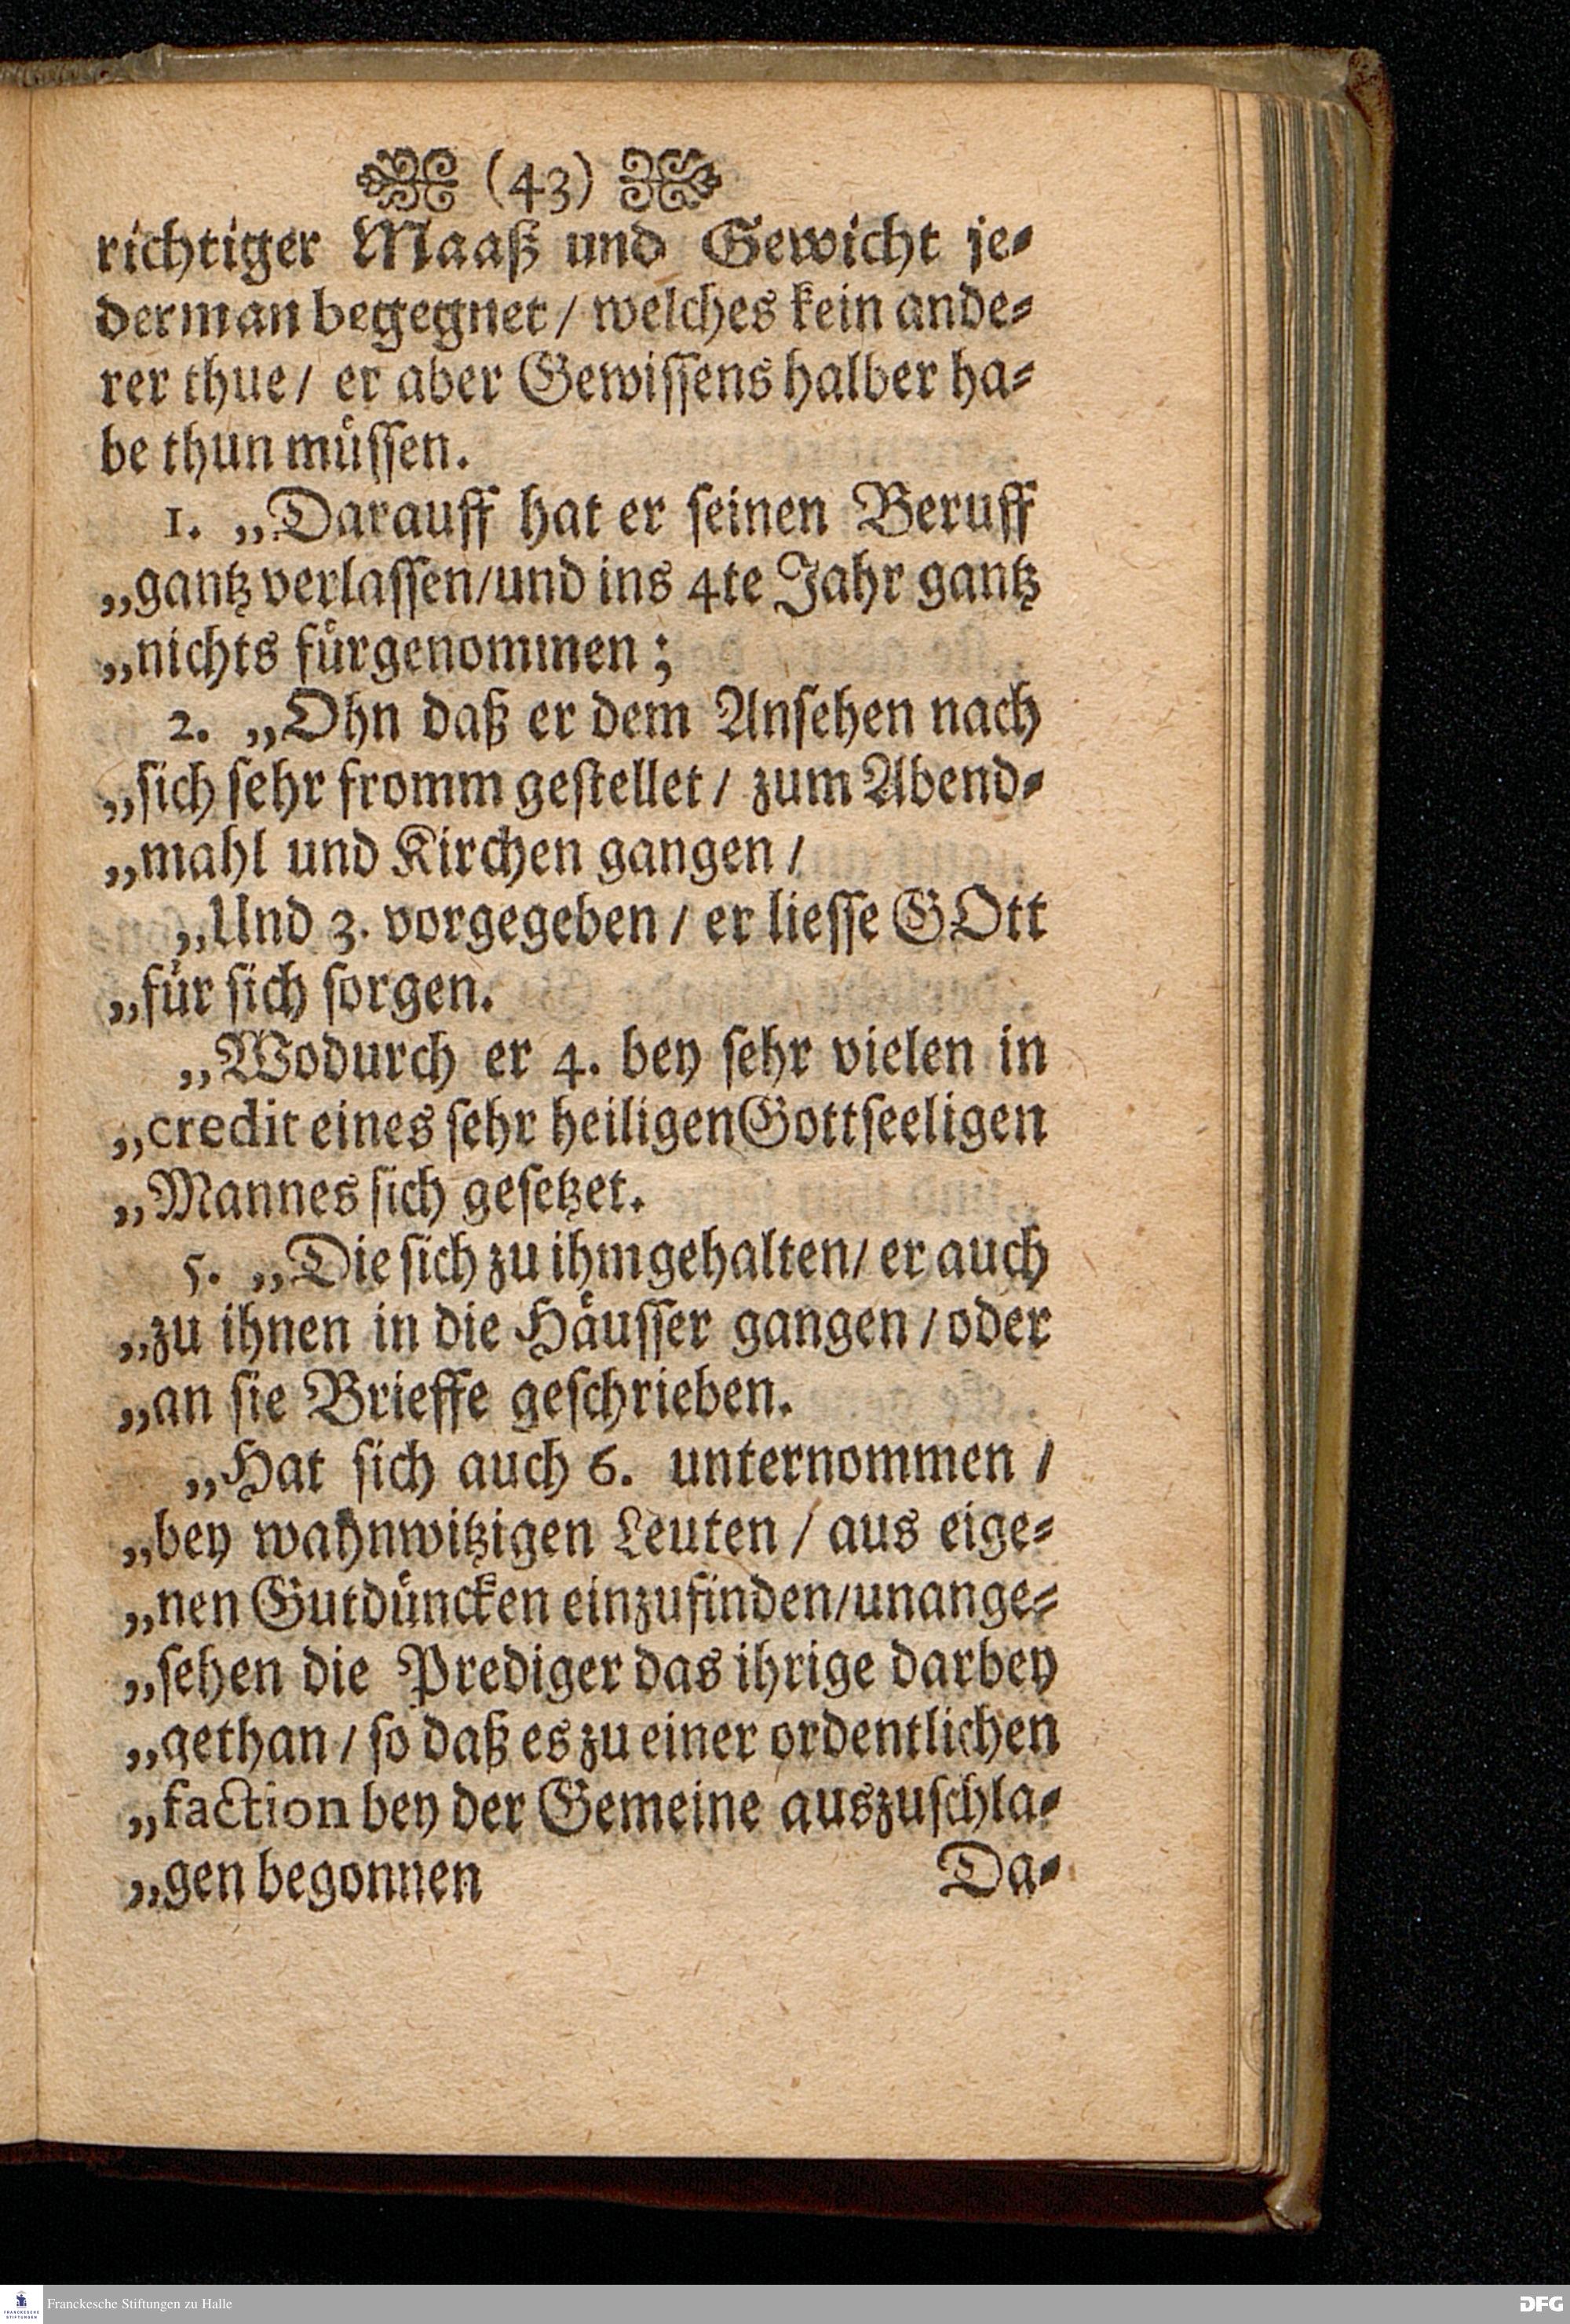 (43)
richtiger Maaß und Gewicht je⸗
derman begegnet / welches kein ande⸗
rer thue / er aber Gewissens halber ha⸗
be thun müssen.
1. „Darauff hat er seinen Beruff
„gantz verlassen/und ins 4te Jahr gantz
„nichts fürgenommen;
2. „Ohn daß er dem Ansehen nach
„sich sehr fromm gestellet / zum Abend⸗
„mahl und Kirchen gangen /
„Und 3. vorgegeben / er liesse GOtt
„für sich sorgen.
„Wodurch er 4. bey sehr vielen in
„credit eines sehr heiligen Gottseeligen
„Mannes sich gesetzet.
5. „Die sich zu ihm gehalten/ er auch
„zu ihnen in die Häusser gangen / oder
„an sie Brieffe geschrieben.
„Hat sich auch 6. unternommen /
„bey wahnwitzigen Leuten / aus eige⸗
„nen Gutdüncken einzufinden/unange⸗
„sehen die Prediger das ihrige darbey
„gethan / so daß es zu einer ordentlichen
„faction bey der Gemeine auszuschla⸗
„gen begonnen
Da⸗
Franckesche Stiftungen zu Halle
FRANCKESCHE
STIFTUNGEN
DFG